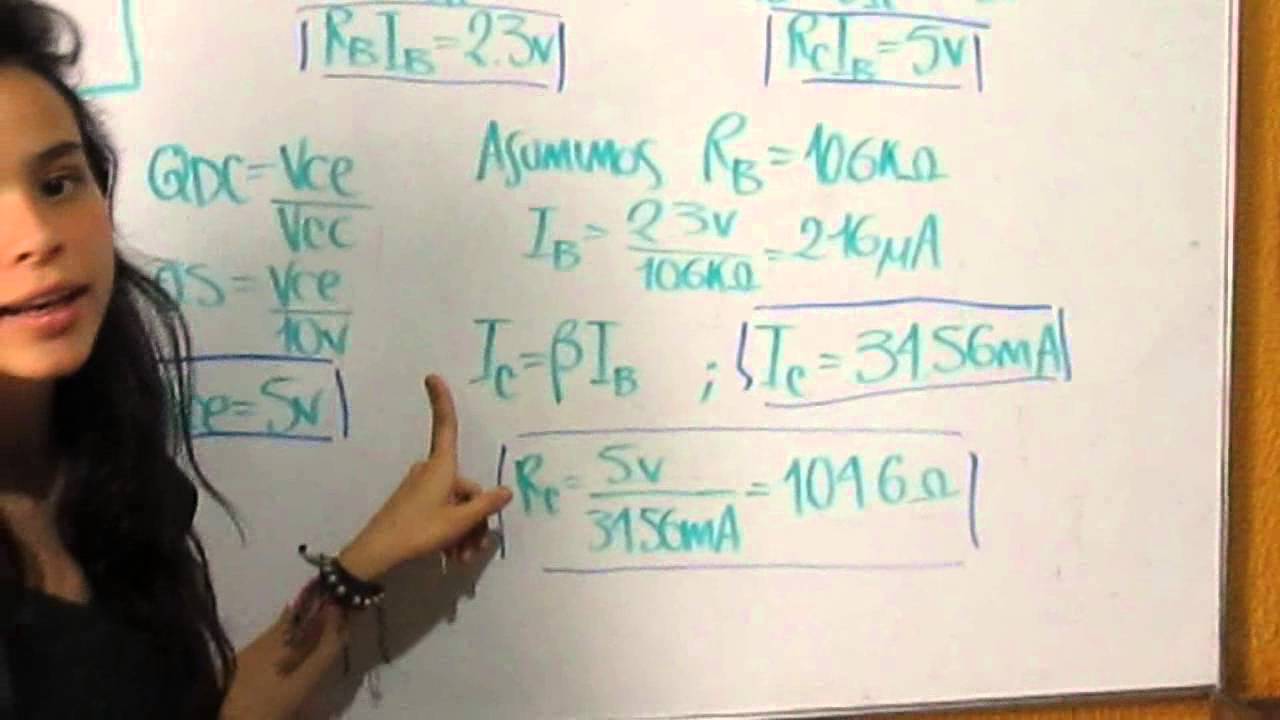 RBIB=2.3v
RcIB=5v
QDC=Vce
Vcc
Asumimos RB=106KΩ
IB=2.3v
106KΩ
=21.6μA
=Vce
10v
Ic=βIB ; Ic=3.456mA
=5v
Rc=5v
3.456mA
=1046Ω